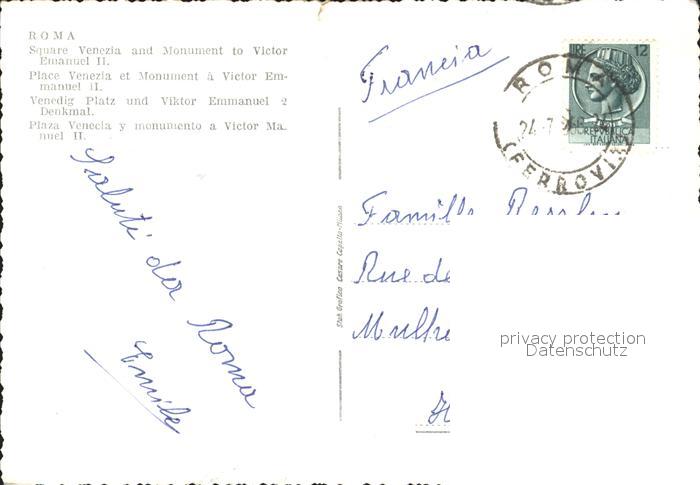 ROMA
Square Venezia and Monument to Victor
Emanuel II.
Place Venezia et Monument à Victor Em-
manuel II.
Venedig Platz und Viktor Emmanuel 2
Denkmal.
Plaza Venecia y monumento a Victor Ma-
nuel II.
Saluti da Roma
Emile
Stab. Grafico Cesare Capello-Milano
Francia
LIRE 12
REPVBBLICA
ITALIANA
ROMA
24-7
(FERROVIA
Famille
Rue de
privacy protection
Datenschutz